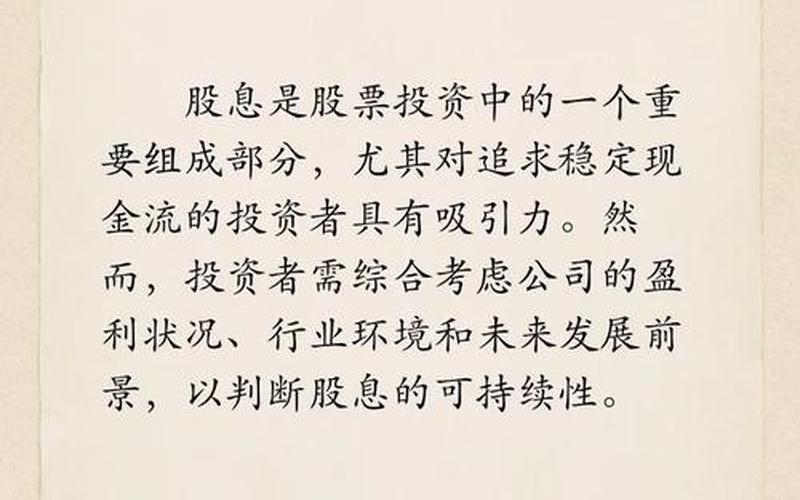 股息是股票投资中的一个重
要组成部分，尤其对追求稳定现
金流的投资者具有吸引力。然
而，投资者需综合考虑公司的盈
利状况、行业环境和未来发展前
景，以判断股息的可持续性。